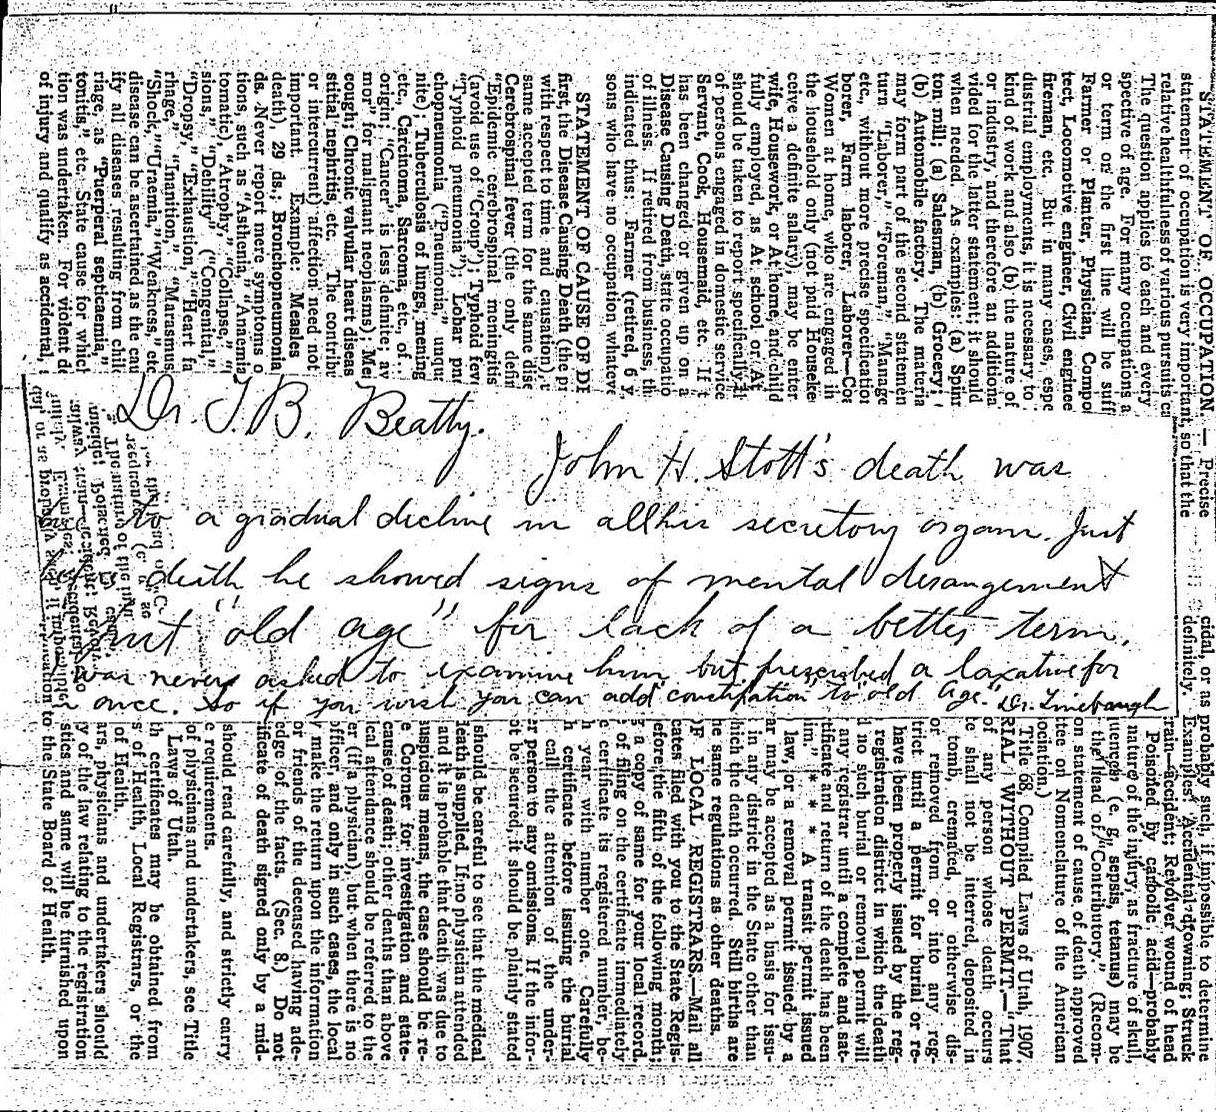 STATEMENT OF OCCUPATION. — Precise
statement of occupation is very important, so that the
relative healthfulness of various pursuits ca
The question applies to each and every
spective of age. For many occupations a
or term on the first line will be suff
Farmer or Planter, Physician, Compo
tect, Locomotive engineer, Civil enginee
fireman, etc. But in many cases, espe
dustrial employments, it is necessary to
kind of work and also (b) the nature of
or industry, and therefore an additiona
vided for the latter statement; it should
when needed. As examples: (a) Spinn
ton mill; (a) Salesman, (b) Grocery; (
(b) Automobile factory. The materia
may form part of the second statemen
turn "Laborer," "Foreman," "Manage
etc., without more precise specification
borer, Farm laborer, Laborer—Coa
Women at home, who are engaged in
the household only (not paid Houseke
ceive a definite salary), may be enter
wife, Housework, or At home, and child
fully employed, as At school or At
should be taken to report specifically
of persons engaged in domestic service
Servant, Cook, Housemaid, etc. If t
has been changed or given up on a
Disease Causing Death, state occupati
of illness. If retired from business, th
indicated thus: Farmer (retired, 6 y
sons who have no occupation whateve
STATEMENT OF CAUSE OF DE
first, the Disease Causing Death (the pr
with respect to time and causation), t
same accepted term for the same dise
Cerebrospinal fever (the only defin
"Epidemic cerebrospinal meningitis
(avoid use of "Croup"); Typhoid fev
"Typhoid pneumonia"); Lobar p
chopneumonia ("Pneumonia," unqua
nite); Tuberculosis of lungs, mening
etc., Carcinoma, Sarcoma, etc., of ...
origin; "Cancer" is less definite; av
mor" for malignant neoplasms); Me
cough; Chronic valvular heart diseas
stitial nephritis, etc. The contribu
or intercurrent) affection need not
important. Example: Measles
death), 29 ds.; Bronchopneumonia
ds. Never report mere symptoms o
tions, such as "Asthenia," "Anaemia
tomatic), "Atrophy," "Collapse," "
sions," "Debility" ("Congenital,"
"Dropsy," "Exhaustion," "Heart fa
rhage," "Inanition," "Marasmus
"Shock," "Uraemia," "Weakness," etc
disease can be ascertained as the cau
ify all diseases resulting from chil
riage, as "Puerperal septicaemia,"
tonitis," etc. State cause for whic
tion was undertaken. For violent de
of injury and qualify as accidental, s
Dr. T. B. Beatty.
John H. Stott's death was
to a gradual decline in all his secretory organs. Just
death he showed signs of mental derangement
but "old age" for lack of a better term.
was never asked to examine him but prescribed a laxative for
once. So if you wish you can add constipation to "old age." Dr. Linebaugh
cidal, or as probably such, if impossible to determine
definitely. Examples: Accidental drowning; Struck
rain—accident; Revolver wound of head
Poisoned by carbolic acid—probably
nature of the injury, as fracture of skull,
uences (e. g., sepsis, tetanus) may be
the head of "Contributory." (Recom-
on statement of cause of death approved
tee on Nomenclature of the American
ociation.)
RIAL WITHOUT PERMIT.—That
Title 68, Compiled Laws of Utah, 1907.
of any person whose death occurs
te shall not be interred, deposited in
tomb, cremated, or otherwise dis-
or removed from or into any reg-
trict until a permit for burial or re-
have been properly issued by the reg-
registration district in which the death
d no such burial or removal permit will
any registrar until a complete and sat-
tificate and return of the death has been
him. * * * A transit permit issued
law, or a removal permit issued by a
ar may be accepted as a basis for issu-
in any district in the State other than
hich the death occurred. Still births are
he same regulations as other deaths.
OF LOCAL REGISTRARS.—Mail all
cates filed with you to the State Regis-
efore the fifth of the following month;
s a copy of same for your local record,
of filing on the certificate immediately
e certificate its registered number, be-
h year with number one. Carefully
h certificate before issuing the burial
call the attention of the under-
er person to any omissions. If the infor-
ot be secured, it should be plainly stated
should be careful to see that the medical
death is supplied. If no physician attended
and it is probable that death was due to
suspicious means, the case should be re-
e Coroner for investigation and state-
cause of death; other deaths than above
ical attendance should be referred to the
er (if a physician), but when there is no
officer, and only in such cases, the local
y make the return upon the information
or friends of the deceased having ade-
edge of the facts. (Sec. 8.) Do not
ificate of death signed only by a mid-
should read carefully, and strictly carry
e requirements.
of physicians and undertakers, see Title
Laws of Utah.
th certificates may be obtained from
s of Health, Local Registrars, or the
of Health.
ars, physicians and undertakers should
y of the law relating to the registration
stics and same will be furnished upon
to the State Board of Health.